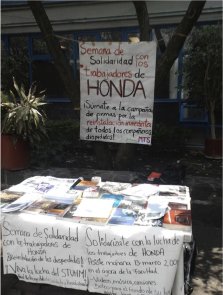 Semana de
Solidaridad
con los
trabajadores de
HONDA
¡Súmate a la campaña
de firmas por la
reinstalación inmediata
de todos los compañeros
despedidos!
MTS
Semana de Solidaridad
con los trabajadores
de HONDA
de los despedidos!
¡Viva la lucha del STUHM!
Solidarízate con la lucha de
los trabajadores de HONDA
mañana, 15 marzo, 2
en el ágora de la facultad
música, canciones